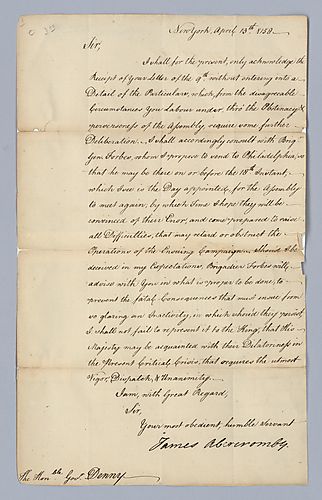 New York, April 13th 1758
Sir,
I shall for the present, only acknowledge the
Receipt of Your Letter of the 9th without entering into a
Detail of the Particulars, which, from the disagreable
Circumstances You Labour under, thro' the Obstinacy &
perverseness of the Assembly, require some further
Deliberation. I shall accordingly consult with Brig.
Gen. Forbes, whom I propose to send to Philadelphia, so
that he may be there on or before the 18th Instant,
which I see is the Day appointed, for the Assembly
to meet again; by which Time I hope they will be
convinced of their Error, and come prepared to raise
all Difficulties, that may retard or obstruct the
Operations of the Ensuing Campaign. Should I be
deceived in my Expectations, Brigadier Forbes will
advise with You in what is proper to be done, to
prevent the fatal Consequences that must ensue from
so glaring an Inactivity, in which should they persist,
I shall not fail to represent it to the King, that His
Majesty may be acquainted with their Dilatoriness in
the Present Critical Crisis, that requires the utmost
Vigor, Dispatch, & Unanimity.
I am, with Great Regard,
Sir,
Your most obedient, humble Servant
James Abercromby.
The Honble Govr. Denny